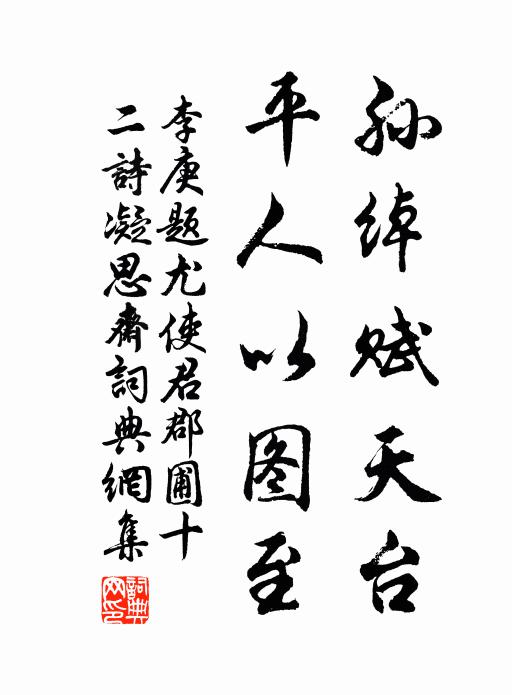 孙绰赋天台
平人以图至
李庚题尤使君郡圃十
二詩凝思齋詞典網集
詞典网印